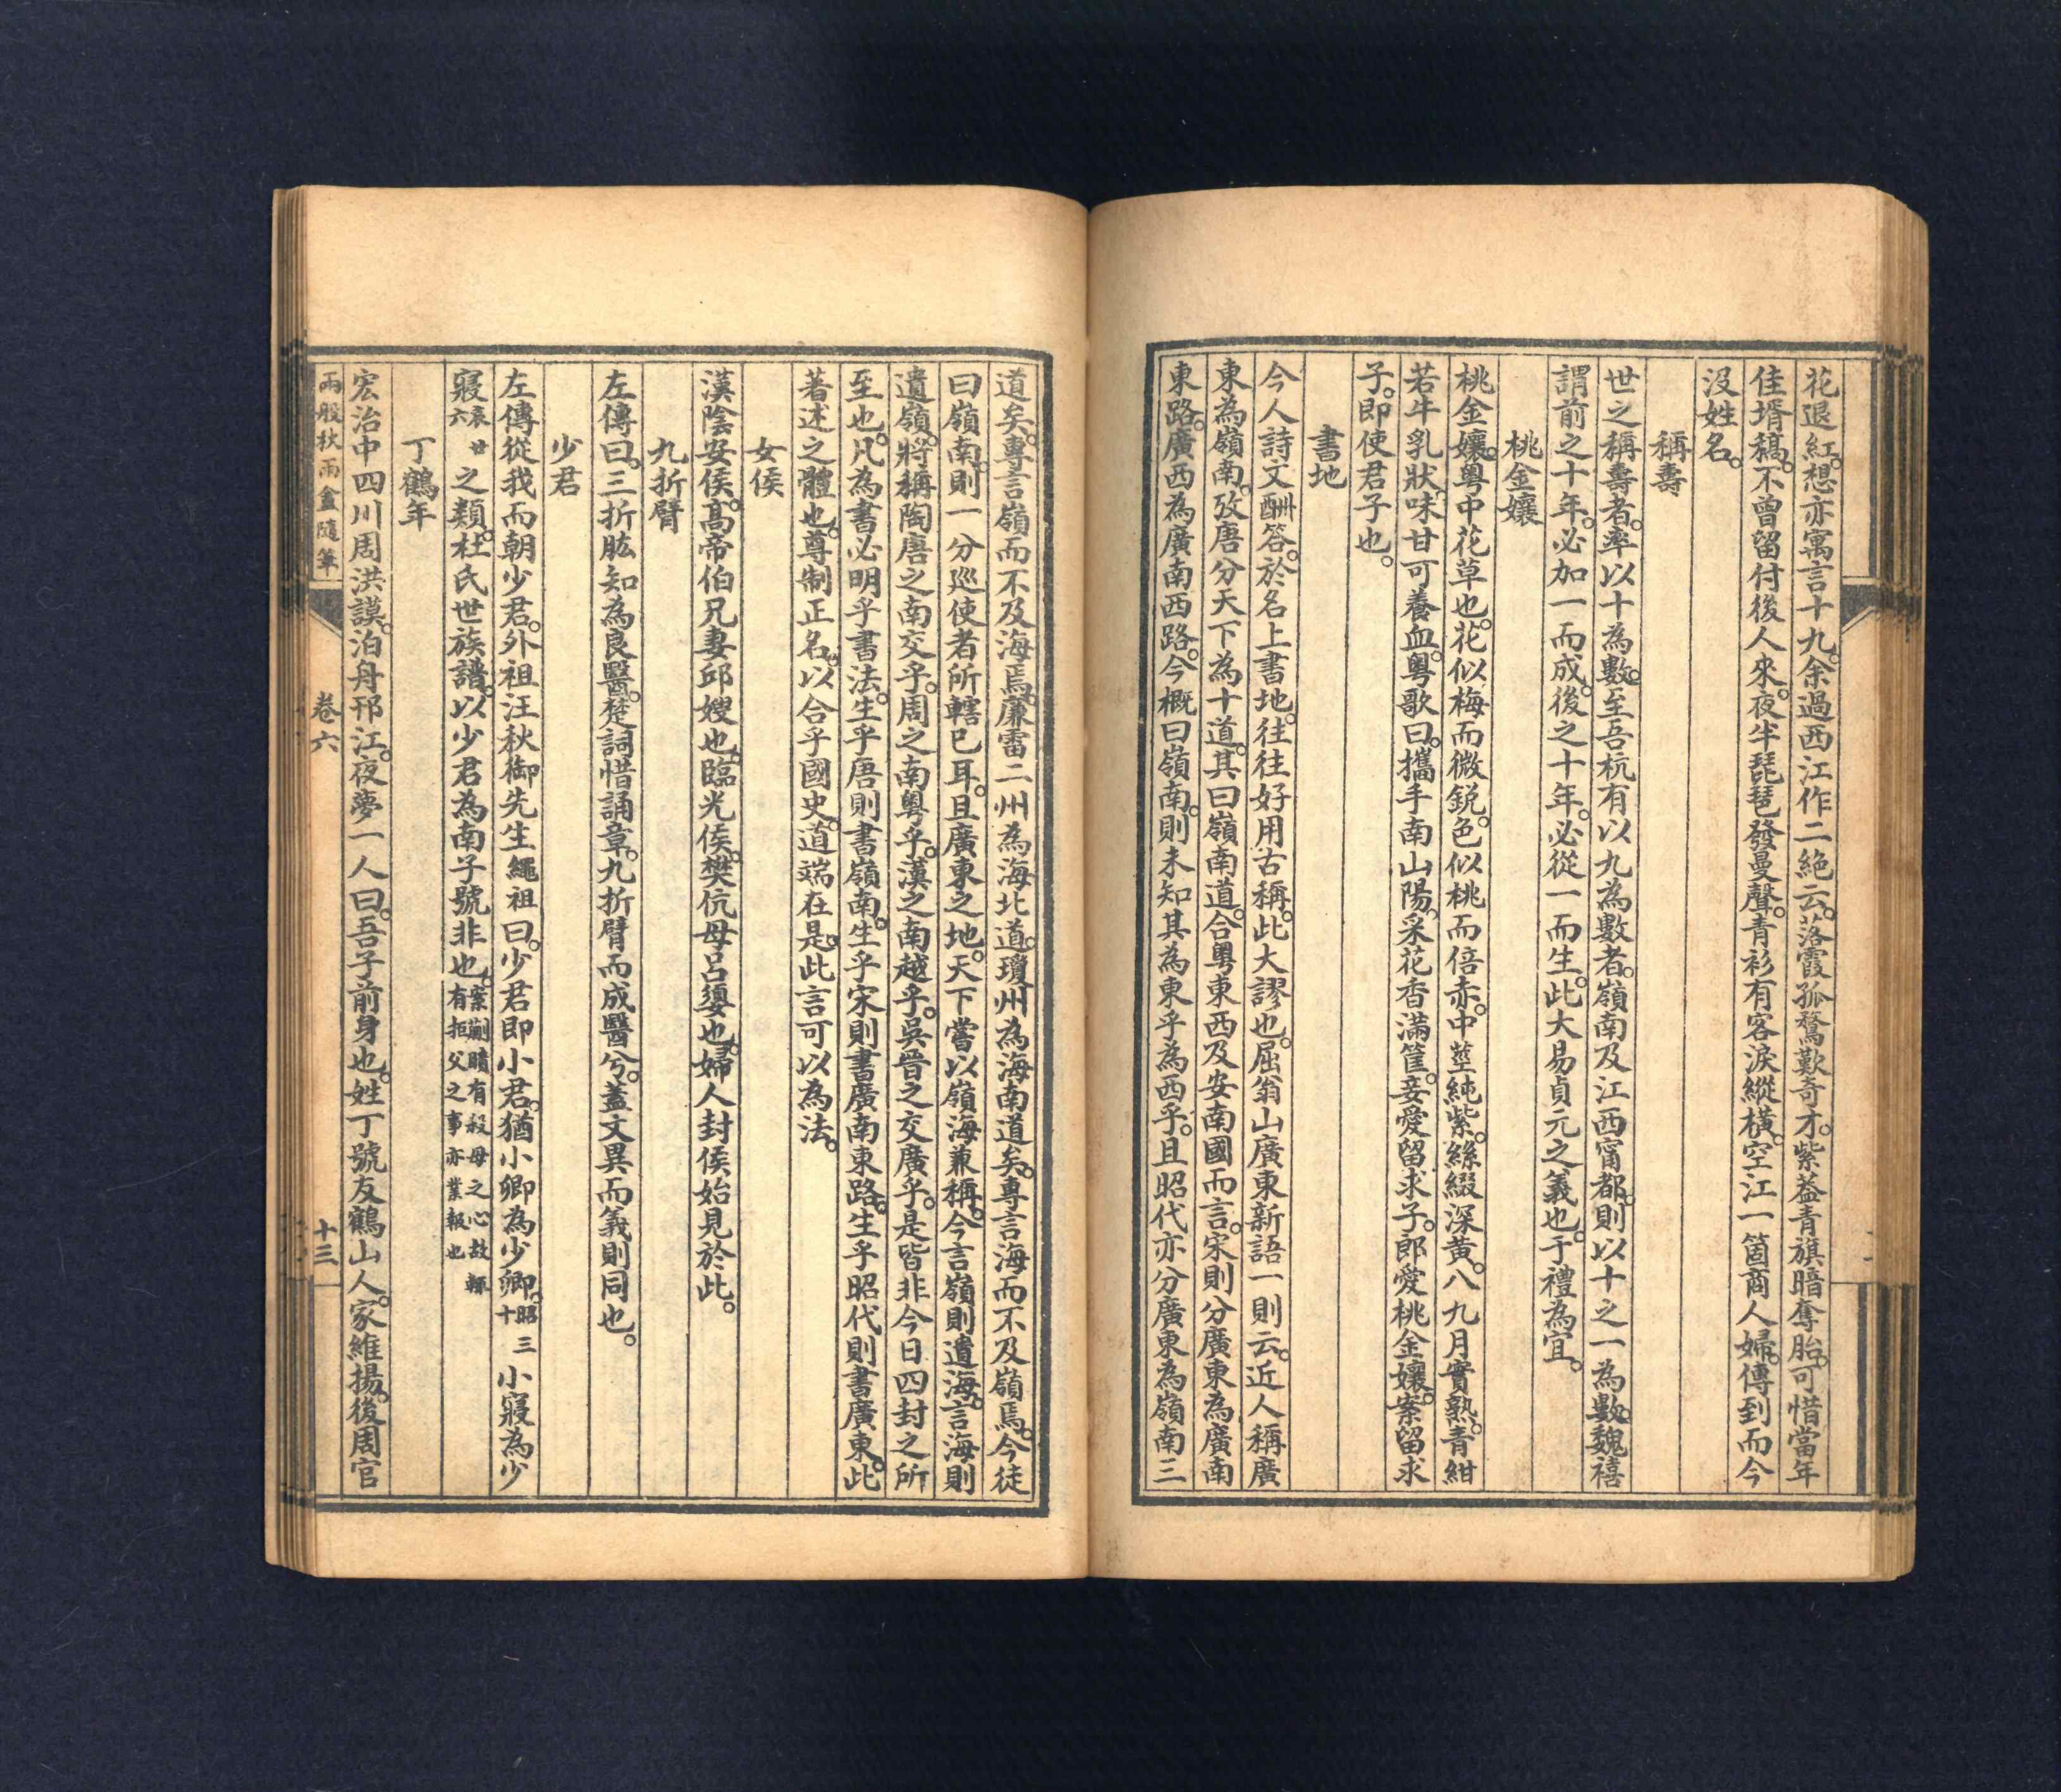 花退紅。想亦寓言十九。余過西江作二絶云。落霞孤鶩歎奇才。紫蓋青旗暗奪胎。可惜當年
佳壻稿。不曾留付後人來。夜半琵琶發曼聲。青衫有客淚縱橫。空江一箇商人婦。傳到而今
沒姓名。
稱壽
世之稱壽者。率以十為數。至吾杭有以九為數者。嶺南及江西甯都。則以十之一為數。魏禧
謂前之十年。必加一而成。後之十年。必從一而生。此大易貞元之義也。于禮為宜。
桃金孃
桃金孃。粵中花草也。花似梅而微銳。色似桃而倍赤。中莖純紫。絲綴深黃。八九月實熟。青紺
若牛乳狀。味甘可養血。粵歌曰。攜手南山陽。采花香滿筐。妾愛留求子。郎愛桃金孃。案留求
子。即使君子也。
書地
今人詩文酬答。於名上書地。往往好用古稱。此大謬也。屈翁山廣東新語一則云。近人稱廣
東為嶺南。攷唐分天下為十道。其曰嶺南道。合粵東西及安南國而言。宋則分廣東為廣南
東路。廣西為廣南西路。今概曰嶺南。則未知其為東乎為西乎。且昭代亦分廣東為嶺南三
道矣。專言嶺而不及海焉。廉雷二州為海北道。瓊州為海南道矣。專言海而不及嶺焉。今徒
曰嶺南。則一分巡使者所轄已耳。且廣東之地。天下嘗以嶺海兼稱。今言嶺則遺海。言海則
遺嶺。將稱陶唐之南交乎。周之南粵乎。漢之南越乎。吳晉之交廣乎。是皆非今日四封之所
至也。凡為書必明乎書法。生乎唐則書嶺南。生乎宋則書廣南東路。生乎昭代則書廣東。此
著述之體也。尊制正名。以合乎國史。道端在是。此言可以為法。
女侯
漢陰安侯。高帝伯兄妻邱嫂也。臨光侯。樊伉母呂嬃也。婦人封侯始見於此。
九折臂
左傳曰。三折肱知為良醫。楚詞惜誦章。九折臂而成醫兮。蓋文異而義則同也。
少君
左傳從我而朝少君。外祖汪秋御先生繩祖曰。少君即小君。猶小卿為少卿。昭十三小寢為少
寢哀廿六之類。杜氏世族譜。以少君為南子號非也。案蒯聵有殺母之心故輒有拒父之事亦業報也
丁鶴年
宏治中四川周洪謨。泊舟邗江。夜夢一人曰。吾子前身也。姓丁號友鶴山人。家維揚。後周官
兩般秋雨盦隨筆 卷六 十三